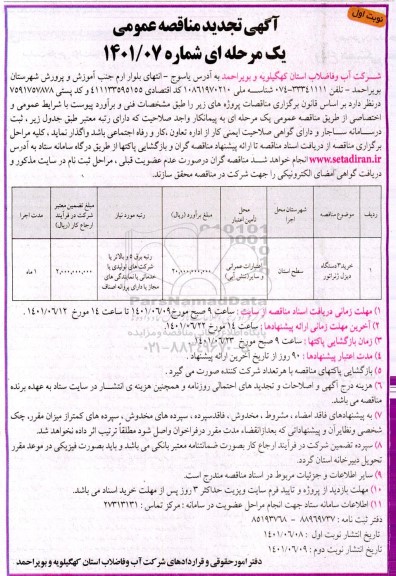 نوبت اول
آگهی تجدید مناقصه عمومی
یک مرحله ای شماره ۱۴۰۱/۰۷
شرکت آب وفاضلاب استان کهگیلویه و بویراحمد به آدرس یاسوج - انتهای بلوار ارم جنب آموزش و پرورش شهرستان
بویراحمد - تلفن ۳۳۳۴۱۱۱۱-۰۷۴ شناسه ملی ۱۰۸۶۱۹۷۰۲۱۰ کد اقتصادی ۴۱۱۱۳۳۵۹۵۱۵۵ و کد پستی ۷۵۹۱۷۵۷۸۷۸
درنظر دارد بر اساس قانون برگزاری مناقصات پروژه های زیر را طبق مشخصات فنی و برآورد پیوست با شرایط عمومی و
اختصاصی از طریق مناقصه عمومی یک مرحله ای به پیمانکار واجد صلاحیت که دارای رتبه معتبر طبق جدول زیر ، ثبت
درسامانه ساجار و دارای گواهی صلاحیت ایمنی کار از اداره تعاون ،کار و رفاه اجتماعی باشد واگذار نماید ، کلیه مراحل
برگزاری مناقصه از دریافت اسناد مناقصه تا ارائه پیشنهاد مناقصه گران و بازگشایی پاکتها از طریق درگاه سامانه ستاد به آدرس
www.setadiran.ir انجام خواهد شد مناقصه گران درصورت عدم عضویت قبلی ، مراحل ثبت نام در سایت مذکور و
دریافت گواهی امضای الکترونیکی را جهت شرکت در مناقصه محقق سازند.
ردیف موضوع مناقصه شهرستان محل اجرا محل تأمین اعتبار مبلغ برآورد (ریال) رتبه مورد نیاز مبلغ تضمین معتبر شرکت در فرآیند ارجاع کار (ریال) مدت اجرا
۱ خرید ۳ دستگاه دیزل ژنراتور سطح استان اعتبارات عمرانی ۲۰,۰۰۰,۰۰۰,۰۰۰ رتبه برق ۵ و بالاتر یا شرکت های تولیدی یا خدماتی یا نمایندگی های مجاز یا دارای پروانه اصناف ۲,۰۰۰,۰۰۰,۰۰۰ ۱ ماه
۱) مهلت زمانی دریافت اسناد مناقصه از سایت : ساعت ۹ صبح مورخ ۱۴۰۱/۰۶/۰۹ تا ساعت ۱۴ مورخ ۱۴۰۱/۰۶/۱۲ .
۲) آخرین مهلت زمانی ارائه پیشنهادها : ساعت ۱۴ مورخ ۱۴۰۱/۰۶/۲۲
۳) زمان بازگشایی پاکتها : ساعت ۹ صبح مورخ ۱۴۰۱/۰۶/۲۳
۴) مدت اعتبار پیشنهادها : ۹۰ روز از تاریخ آخرین ارائه پیشنهاد .
۵) بازگشایی پاکتهای مناقصه با هر تعداد شرکت کننده صورت می گیرد .
۶) هزینه درج آگهی و اصلاحات و تجدید های احتمالی روزنامه و همچنین هزینه ی انتشار در سایت ستاد به عهده برنده
مناقصه می باشد.
۷) به پیشنهادهای فاقد امضاء ، مشروط ، مخدوش ، فاقدسپرده ، سپرده های مخدوش ، سپرده های کمتراز میزان مقرر، چک
شخصی ونظایر آن و پیشنهاداتی که بعدازانقضاء مدت مقرر درفراخوان واصل شود مطلقاً ترتیب اثر داده نخواهد شد.
۸) سپرده تضمین شرکت در فرآیند ارجاع کار بصورت ضمانتنامه معتبر بانکی می باشد و باید بصورت فیزیکی در موعد مقرر
تحویل دبیرخانه استان گردد.
۹) سایر اطلاعات و جزئیات مربوط در اسناد مناقصه مندرج است.
۱۰) مهلت بازدید از پروژه و تایید فرم سایت ویزیت حداکثر ۳ روز پس از مهلت خرید اسناد می باشد.
۱۱) اطلاعات سامانه ستاد جهت انجام مراحل عضویت در سامانه : مرکز تماس : ۲۷۳۱۳۱۳۱
دفتر ثبت نامه : ۸۸۹۶۹۷۳۷ - ۸۵۱۹۳۷۶۸
تاریخ انتشار نوبت اول : ۱۴۰۱/۰۶/۰۸
تاریخ انتشار نوبت دوم : ۱۴۰۱/۰۶/۰۹
دفتر امور حقوقی و قراردادهای شرکت آب وفاضلاب استان کهگیلویه و بویراحمد